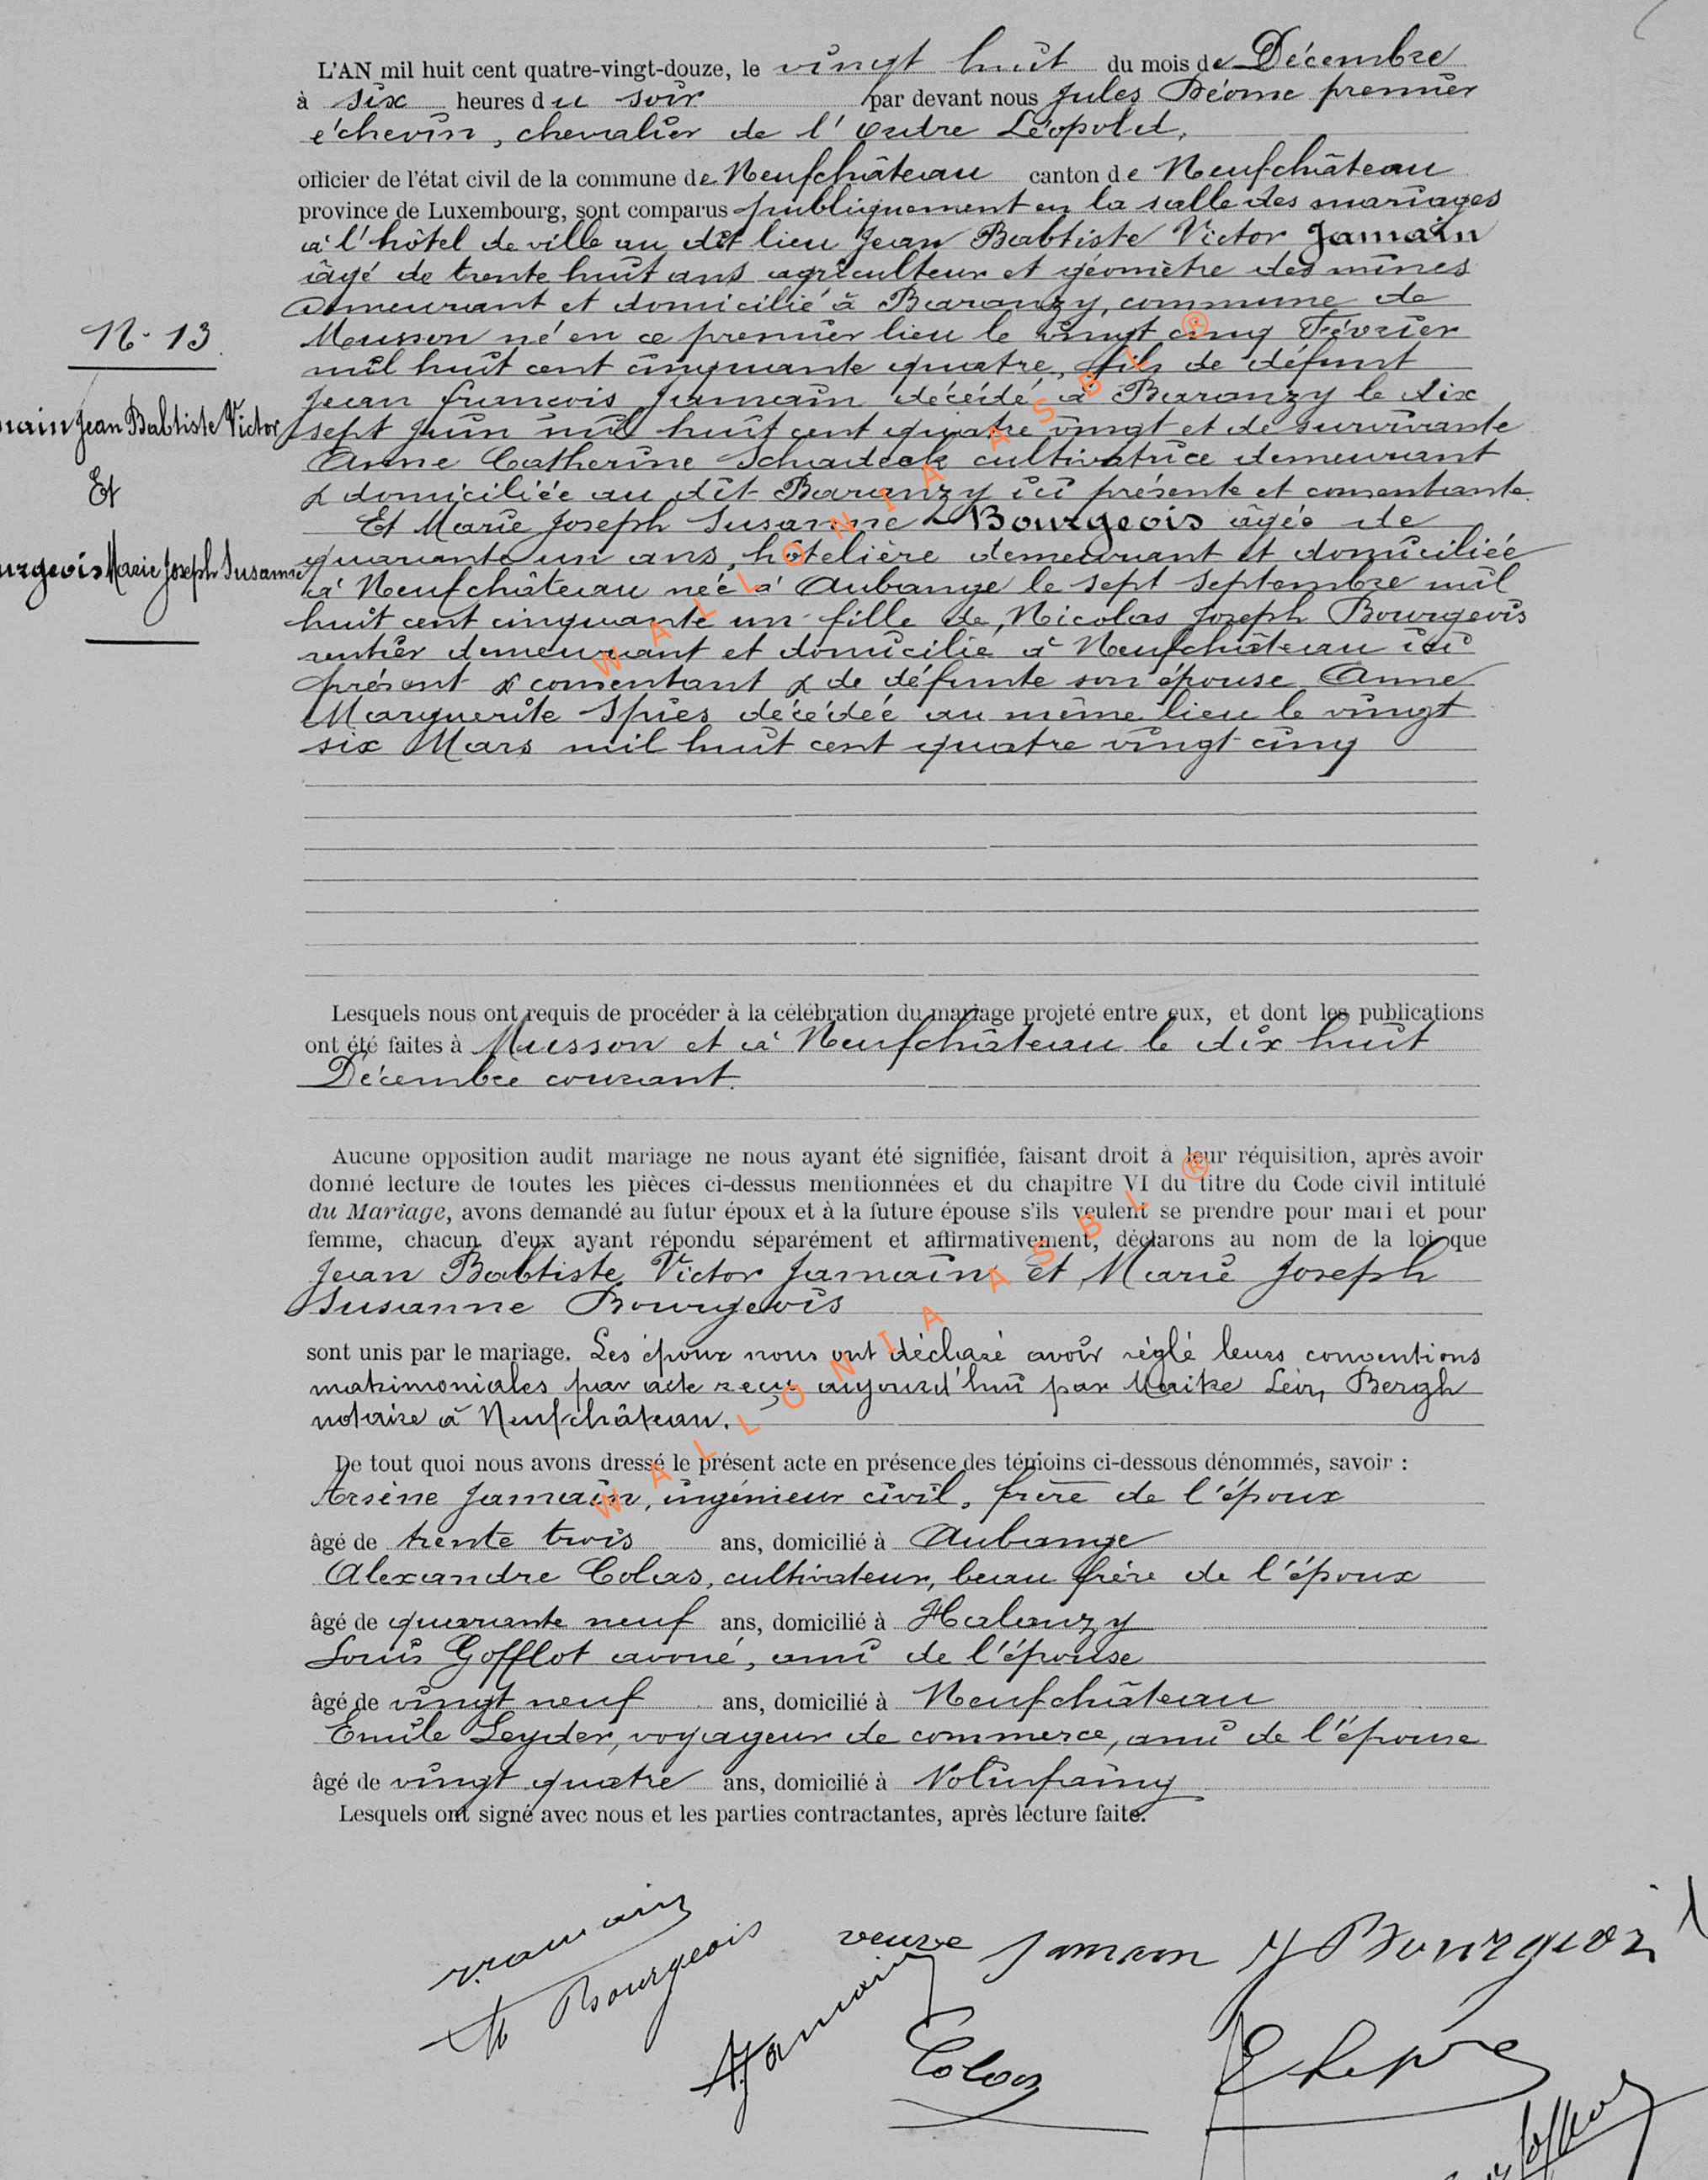 L'AN mil huit cent quatre-vingt-douze, le vingt huit du mois de Décembre
à six heures du soir par devant nous Jules Déome premier
échevin, chevalier de l'ordre Léopold,
officier de l'état civil de la commune de Neufchâteau canton de Neufchâteau
province de Luxembourg, sont comparus publiquement en la salle des mariages
à l'hôtel de ville au dit lieu Jean Babtiste Victor Jamain
âgé de trente huit ans agriculteur et géomètre des mines
demeurant et domicilié à Baranzy, commune de
N. 13
Musson né en ce premier lieu le vingt cinq Février
mil huit cent cinquante quatre, fils de défunt
Jean francois Jamain décédé à Baranzy le dix
main Jean Babtiste Victor
sept Juin mil huit cent quatre vingt et de survivante
Anne Catherine Schadeck cultivatrice demeurant
Et
& domiciliée au dit Baranzy ici présente et consentante.
Et Marie Joseph Susanne Bourgeois âgée de
quarante un ans, hôtelière demeurant et domiciliée
urgeois Marie Joseph Susanne
à Neufchâteau née à Aubange le sept septembre mil
huit cent cinquante un fille de Nicolas Joseph Bourgeois
rentier demeurant et domicilié à Neufchâteau ici
présent & consentant & de défunte son épouse Anne
Marguerite Spies décédée au même lieu le vingt
six Mars mil huit cent quatre vingt cinq
Lesquels nous ont requis de procéder à la célébration du mariage projeté entre eux, et dont les publications
ont été faites à Musson et à Neufchâteau le dix huit
Décembre courant.
Aucune opposition audit mariage ne nous ayant été signifiée, faisant droit à leur réquisition, après avoir
donné lecture de toutes les pièces ci-dessus mentionnées et du chapitre VI du titre du Code civil intitulé
du Mariage, avons demandé au futur époux et à la future épouse s'ils veulent se prendre pour mari et pour
femme, chacun d'eux ayant répondu séparément et affirmativement, déclarons au nom de la loi que
Jean Babtiste Victor Jamain et Marie Joseph
Susanne Bourgeois
sont unis par le mariage. Les époux nous ont déclaré avoir réglé leurs conventions
matrimoniales par acte reçu aujourd'hui par Maitre Bergh
notaire à Neufchâteau.
De tout quoi nous avons dressé le présent acte en présence des témoins ci-dessous dénommés, savoir :
Arsène Jamain, ingénieur civil, frère de l'époux
âgé de trente trois ans, domicilié à Aubange
Alexandre Colas, cultivateur, beau frère de l'époux
âgé de quarante neuf ans, domicilié à Halanzy
Louis Gofflot avoué, ami de l'épouse
âgé de vingt neuf ans, domicilié à Neufchâteau
Emile Leyder, voyageur de commerce, ami de l'épouse
âgé de vingt quatre ans, domicilié à Nolinfaing
Lesquels ont signé avec nous et les parties contractantes, après lecture faite.
veuve Jamain
M Bourgeois
A Jamain
Colas
WALLONIA ASBL ®
WALLONIA ASBL ®